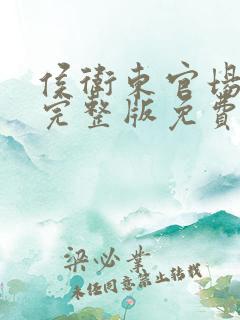 侯衛東官場
完整版免費
梁必業
未经同意禁止转载